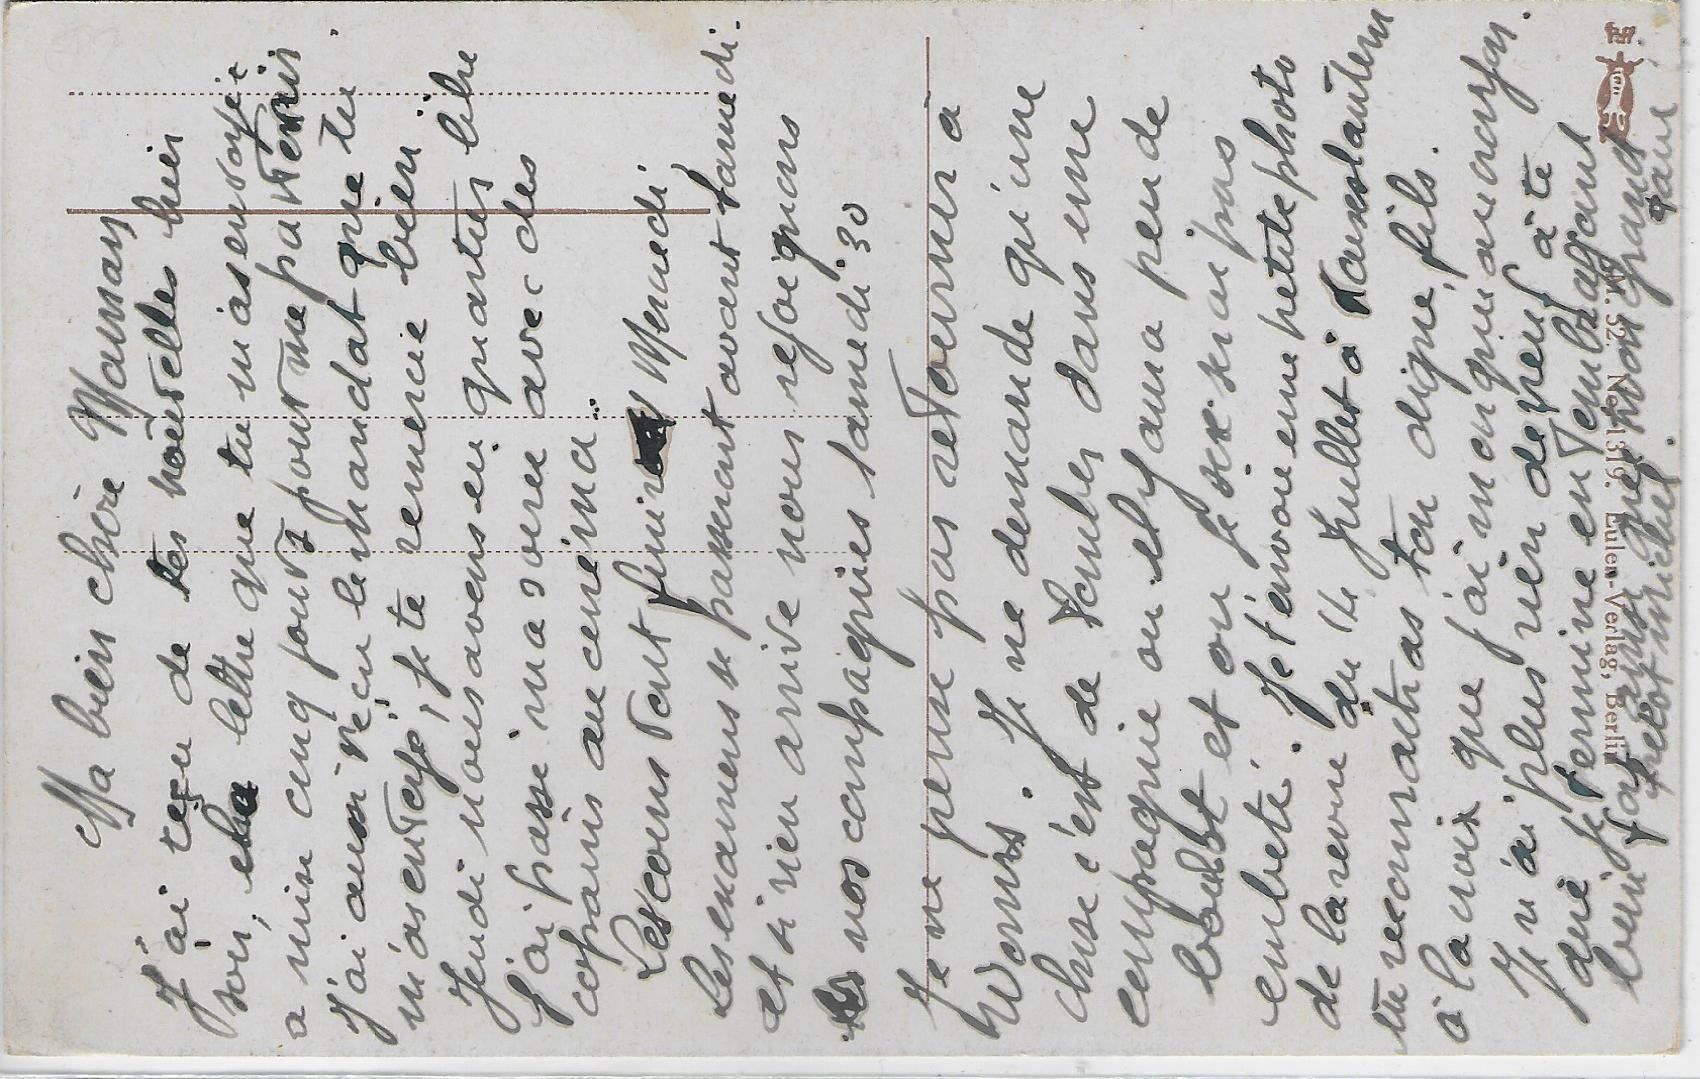 Ma bien chère Maman
J'ai reçu de tes nouvelles hier
soir, la lettre que tu m'as envoyé
a mise cinq jours pour me parvenir.
J'ai aussi reçu le mandat que tu
m'as envoyé, je te remercie bien.
Jeudi nous avons eu quartier libre
j'ai passé ma soirée avec des
copains au cinéma...
Les cours sont finis Mercredi
Les examens se passeront avant samedi.
et si rien arrive nous rejoignons
nos compagnies samedi 30
Je ne pense pas retourner a
Worms. Je ne demande qu'une
chose c'est de tomber dans une
compagnie ou il y aura peu de
boulot et ou je ne serai pas
embeté. Je t'envoie une petite photo
de la revue du 14 Juillet à
tu reconnaitras ton digne fils.
à la croix que j'ai marqué au crayon.
Je n'ai plus rien de neuf à te
dire je termine en t'embrassant
bien fort ainsi que mon grand
frérot michel.
M. 52. No. 1319. Eulen-Verlag, Berlin